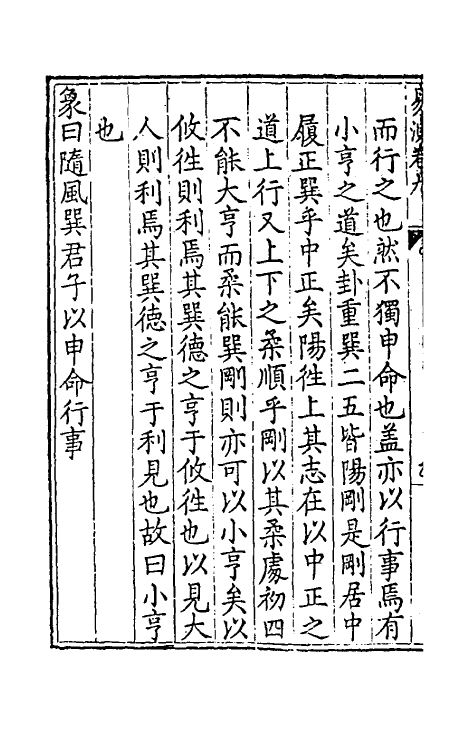 而行之也然不獨申命也盖亦以行事焉有
小亨之道矣卦重巽二五皆陽剛是剛居中
履正巽乎中正矣陽徃上其志在以中正之
道上行又上下之柔順乎剛以其柔處初四
不能大亨而柔能巽剛則亦可以小亨矣以
攸徃則利焉其巽德之亨于攸徃也以見大
人則利焉其巽德之亨于利見也故曰小亨
也
象曰隨風巽君子以申命行事